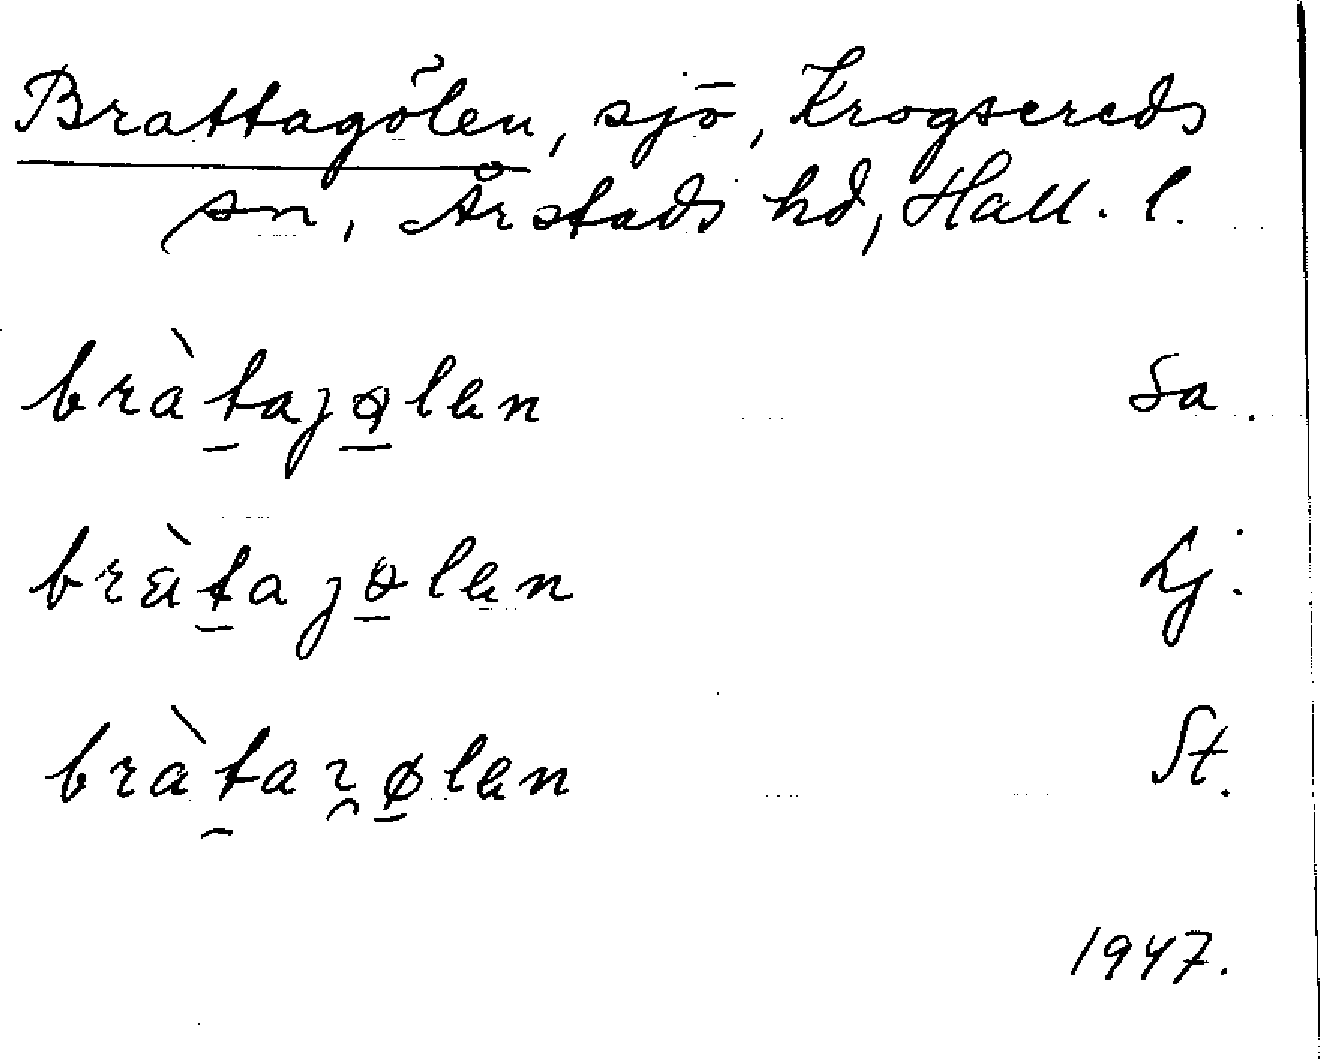 Brattagölen, sjö, Krogsereds
sn, Årstads hd, Hall. l.
bràtajølen Sa.
bràtajölen Lj.
bràtaɿølen St.
1947.